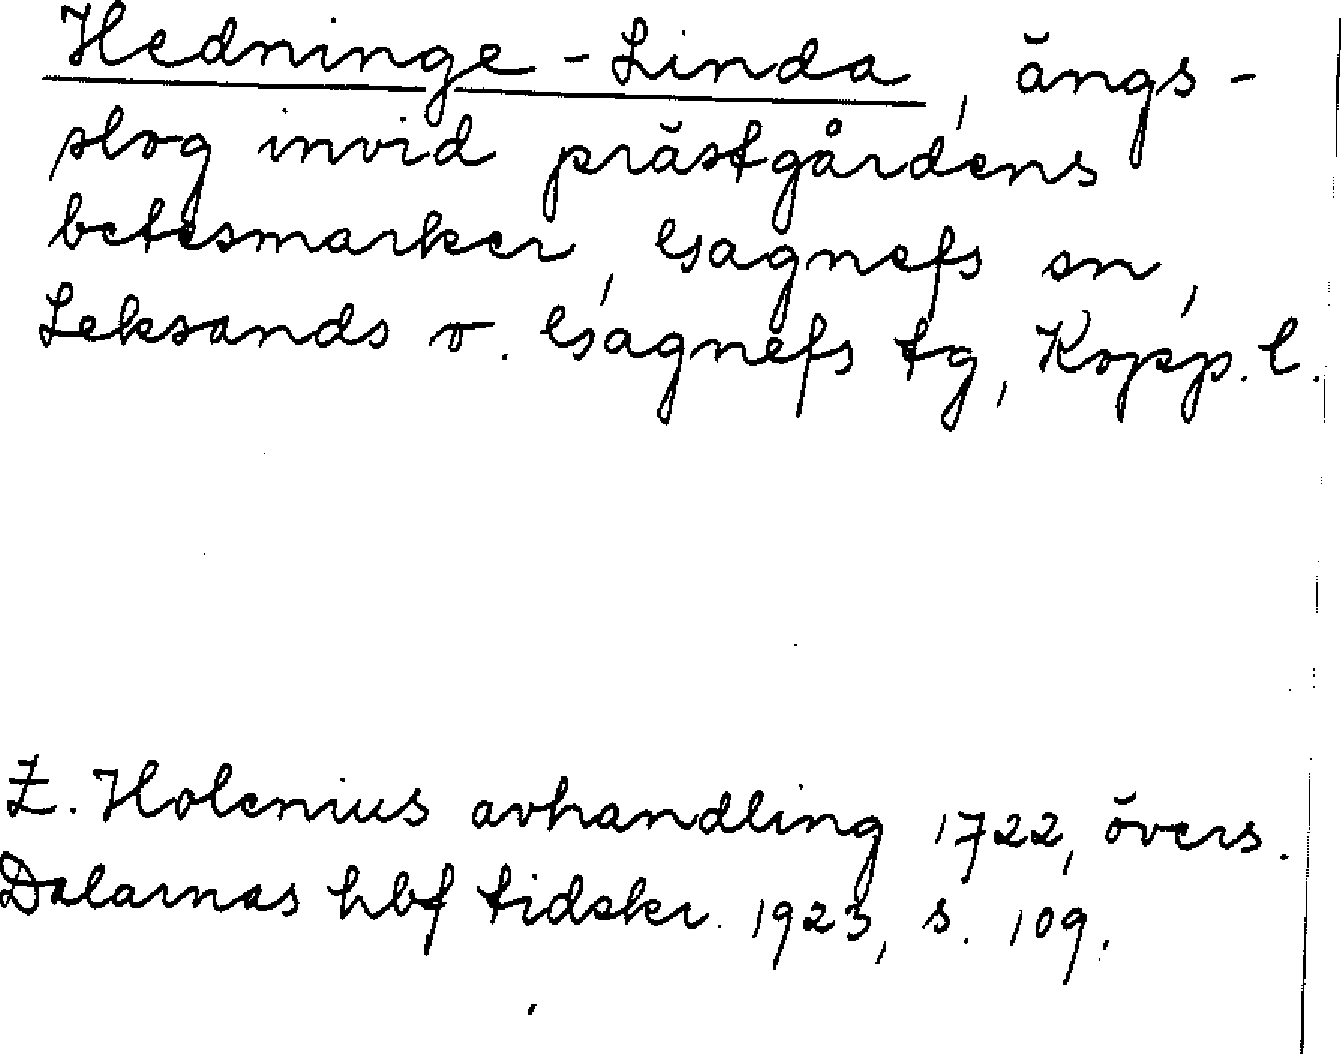 Hedninge-Linda, ängs-
slog invid prästgårdens
betesmarker, Gagnefs sn,
Leksands o. Gagnefs tg, Kopp. l.
Z. Holenius avhandling 1722, övers.
Dalarnas hbf tidskr. 1923, s. 109.